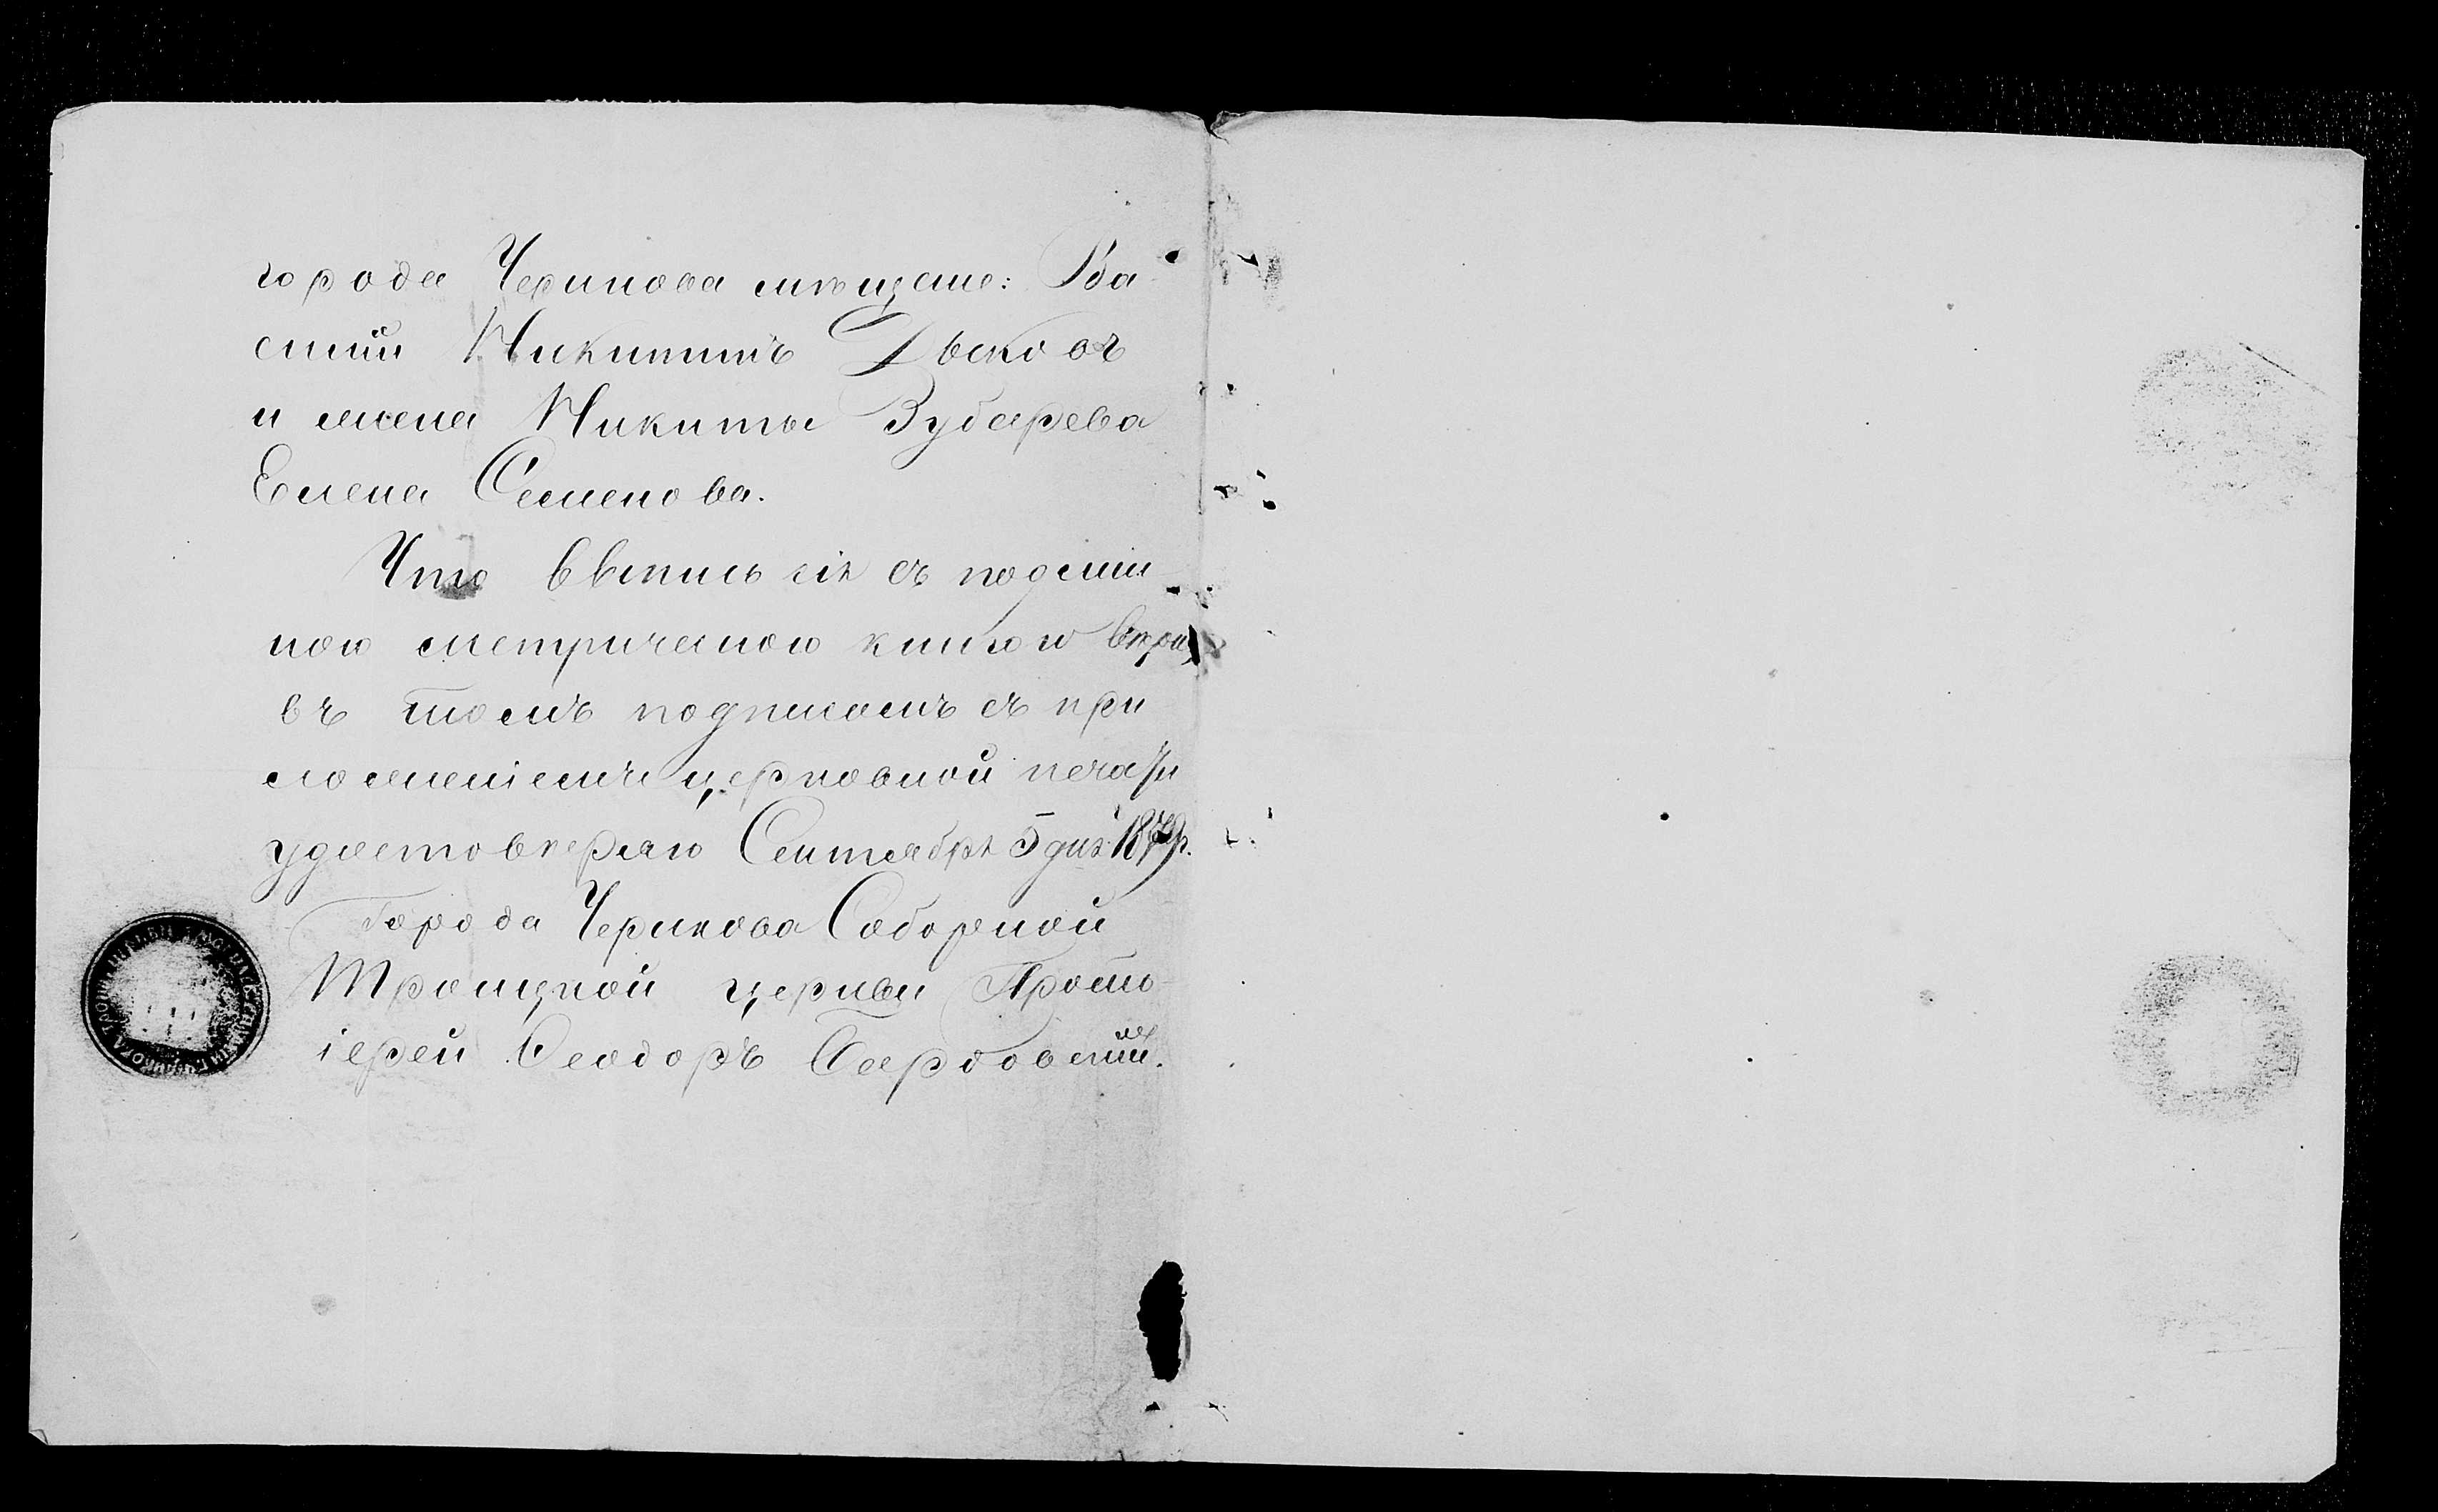 города Черикова мѣщане: Ва-
силій Никитинъ Дьяковъ
и жена Никиты Зубарева
Елена Семенова.
Что выпись сія съ подлин-
ною метрическою книгою вѣрна
въ томъ подписомъ съ при
ложеніемъ церковной печати
удостовѣряю Сентября 5 дня 1879 г.
Города Черикова Соборной
Троицкой церкви Прото-
іерей Ѳеодоръ